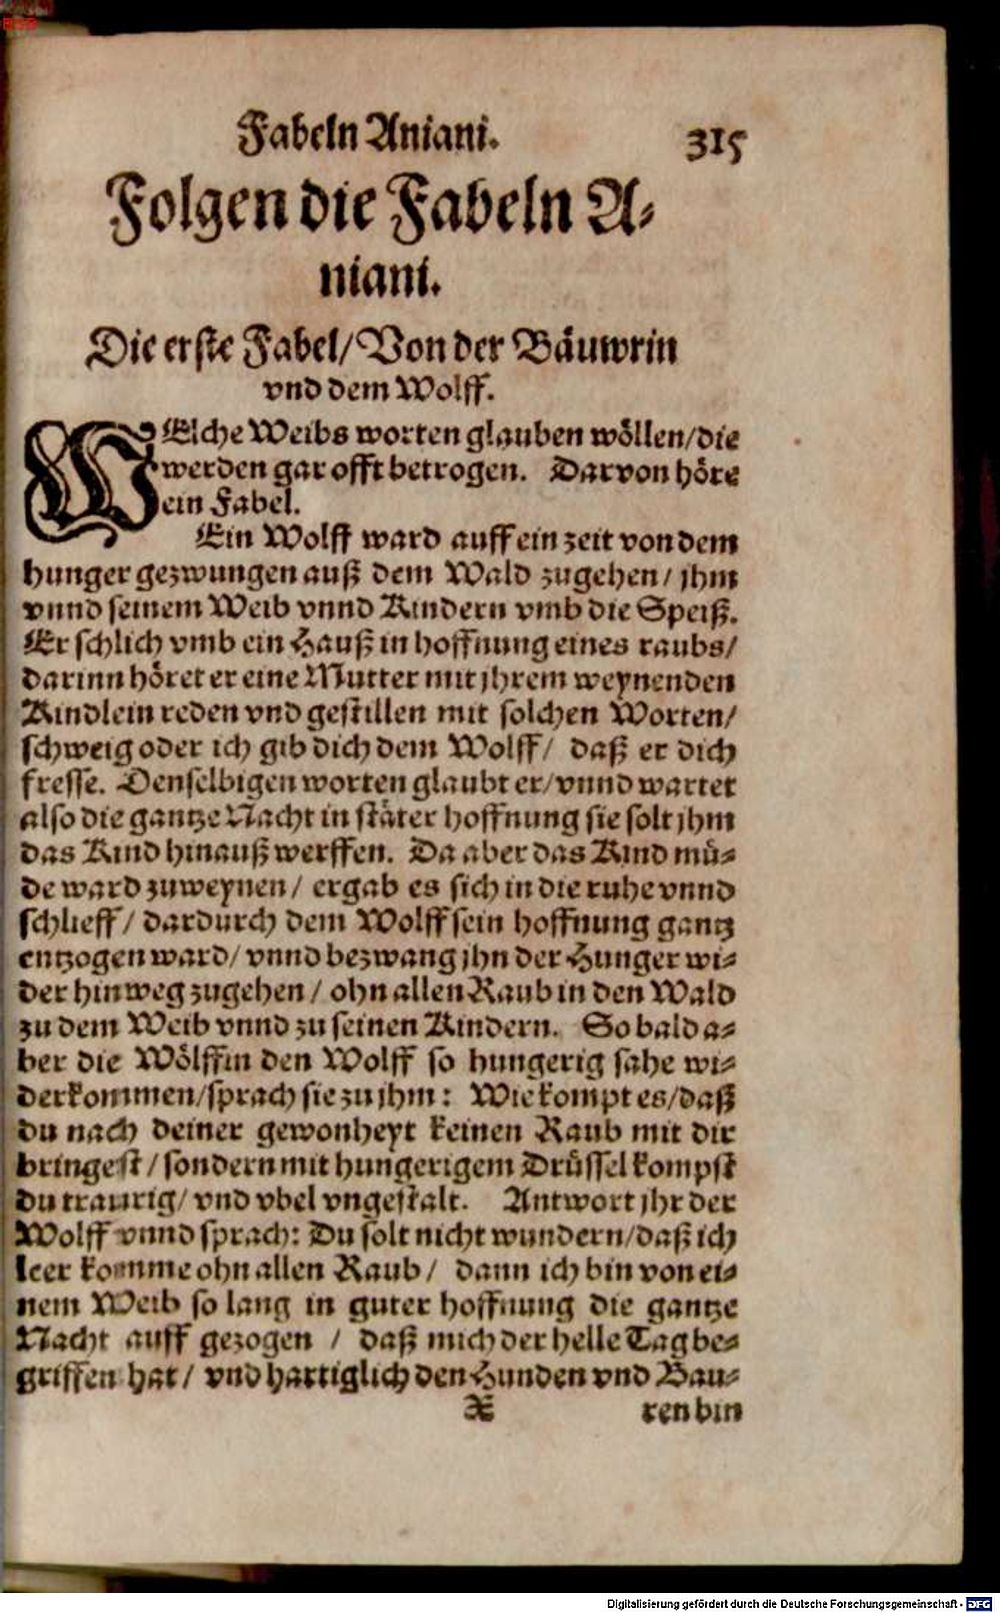 BSB
Fabeln Aniani. 315
Folgen die Fabeln A-
niani.
Die erste Fabel/ Von der Bäuwrin
vnd dem Wolff.
WElche Weibs worten glauben wöllen/ die
werden gar offt betrogen. Darvon höre
ein Fabel.
Ein Wolff ward auff ein zeit von dem
hunger gezwungen auß dem Wald zugehen/ jhm
vnnd seinem Weib vnnd Kindern vmb die Speiß.
Er schlich vmb ein Hauß in hoffnung eines raubs/
darinn höret er eine Mutter mit jhrem weynenden
Kindlein reden vnd gestillen mit solchen Worten/
schweig oder ich gib dich dem Wolff/ daß er dich
fresse. Denselbigen worten glaubt er/ vnnd wartet
also die gantze Nacht in stäter hoffnung sie solt jhm
das Kind hinauß werffen. Da aber das Kind mü-
de ward zuweynen/ ergab es sich in die ruhe vnnd
schlieff/ dardurch dem Wolff sein hoffnung gantz
entzogen ward/ vnnd bezwang jhn der Hunger wi-
der hinweg zugehen/ ohn allen Raub in den Wald
zu dem Weib vnnd zu seinen Kindern. So bald a-
ber die Wölffin den Wolff so hungerig sahe wi-
derkommen/ sprach sie zu jhm: Wie kompt es/ daß
du nach deiner gewonheyt keinen Raub mit dir
bringest/ sondern mit hungerigem Drüssel kompst
du traurig/ vnd vbel vngestalt. Antwort jhr der
Wolff vnnd sprach: Du solt nicht wundern/ daß ich
leer komme ohn allen Raub/ dann ich bin von ei-
nem Weib so lang in guter hoffnung die gantze
Nacht auff gezogen / daß mich der helle Tag be-
griffen hat/ vnd hartiglich den Hunden vnd Bau-
X ren bin
Digitalisierung gefördert durch die Deutsche Forschungsgemeinschaft - DFG